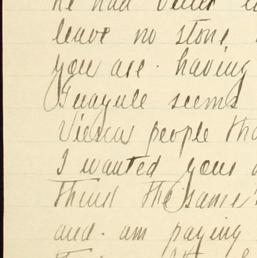 he had better
leave no stone
you are. having
Guayule seems
people tha
I wanted yous
think the same
and. am paying